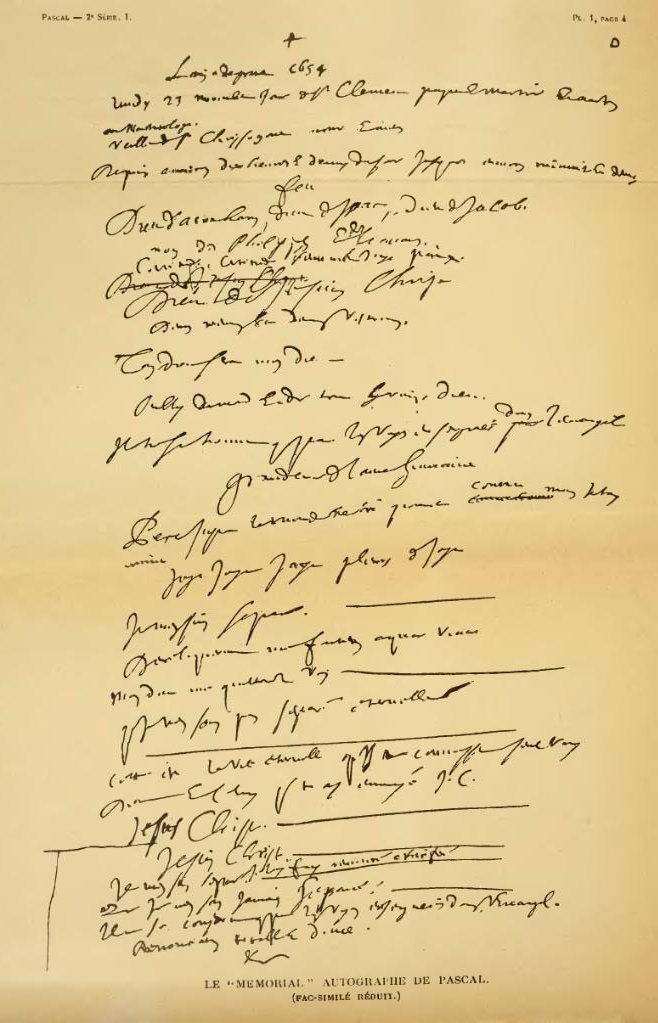 PASCAL — 2e SÉRIE. 1.
PL. 1, PAGE 4
D
L'an de grace 1654
Lundy 23 novembre jour de St Clement pape et martir et autres
au Martirologe
veille de St Chrysogone et autres
Depuis environ dix heures et demy du soir jusques environ minuit et demy
feu
Dieu d'Abraham, Dieu d'Isaac, Dieu de Jacob.
non des Philosophes et des scavans.
Certitude, certitude, sentiment, joye, paix.
Dieu de Jesus Christ
Deum meum et Deum vestrum.
Ton Dieu sera mon Dieu —
Oubly du monde et de tout hormis Dieu.
Il ne se trouve que par les voyes enseignées dans l'Evangile
Grandeur de l'ame humaine
Pere juste, le monde ne t'a point connu mais je t'ay
connu
Joye Joye Joye pleurs de joye
Je m'en suis separé
Dereliquerunt me fontem aquae vivae
mon Dieu me quitterez vous
que je n'en sois pas separé eternellement
Cette est la vie eternelle qu'ils te connoissent seul vray
Dieu et celuy que tu as envoyé J.C.
Jesus Christ.
Jesus Christ.
Je m'en suis separé je l'ay fuy renoncé crucifié
que je n'en sois jamais separé!
Il ne se conserve que par les voyes enseignées dans l'Evangile.
Renonciation totale et douce.
LE "MEMORIAL" AUTOGRAPHE DE PASCAL.
(FAC-SIMILÉ RÉDUIT.)